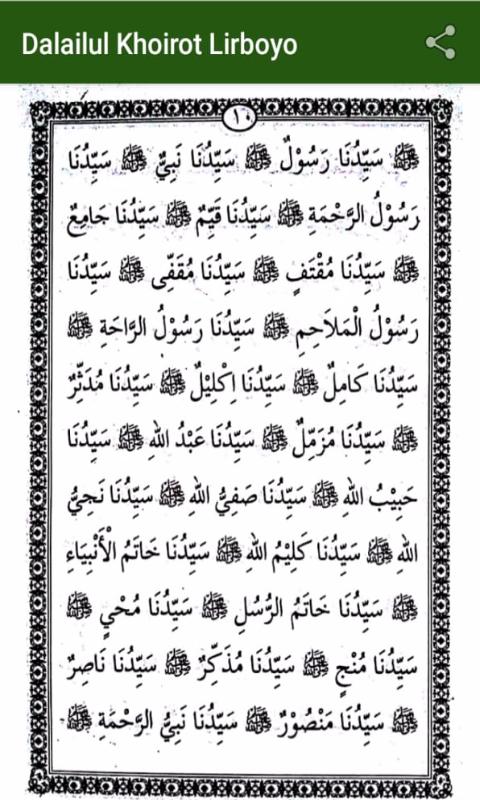 Dalailul Khoirot Lirboyo
١٠
ﷺ سَيِّدُنَا رَسُوْلٌ ﷺ سَيِّدُنَا نَبِيٌّ ﷺ سَيِّدُنَا
رَسُوْلُ الرَّحْمَةِ ﷺ سَيِّدُنَا قَيِّمٌ ﷺ سَيِّدُنَا جَامِعٌ
ﷺ سَيِّدُنَا مُقْتَفٍ ﷺ سَيِّدُنَا مُقَفِّى ﷺ سَيِّدُنَا
رَسُوْلُ الْمَلَاحِمِ ﷺ سَيِّدُنَا رَسُوْلُ الرَّاحَةِ ﷺ
سَيِّدُنَا كَامِلٌ ﷺ سَيِّدُنَا اِكْلِيْلٌ ﷺ سَيِّدُنَا مُدَثِّرٌ
ﷺ سَيِّدُنَا مُزَمِّلٌ ﷺ سَيِّدُنَا عَبْدُ اللهِ ﷺ سَيِّدُنَا
حَبِيْبُ اللهِ ﷺ سَيِّدُنَا صَفِيُّ اللهِ ﷺ سَيِّدُنَا نَجِيُّ
اللهِ ﷺ سَيِّدُنَا كَلِيْمُ اللهِ ﷺ سَيِّدُنَا خَاتَمُ الْأَنْبِيَاءِ
ﷺ سَيِّدُنَا خَاتَمُ الرُّسُلِ ﷺ سَيِّدُنَا مُحْيٍ ﷺ
سَيِّدُنَا مُنْجٍ ﷺ سَيِّدُنَا مُذَكِّرٌ ﷺ سَيِّدُنَا نَاصِرٌ
ﷺ سَيِّدُنَا مَنْصُوْرٌ ﷺ سَيِّدُنَا نَبِيُّ الرَّحْمَةِ ﷺ